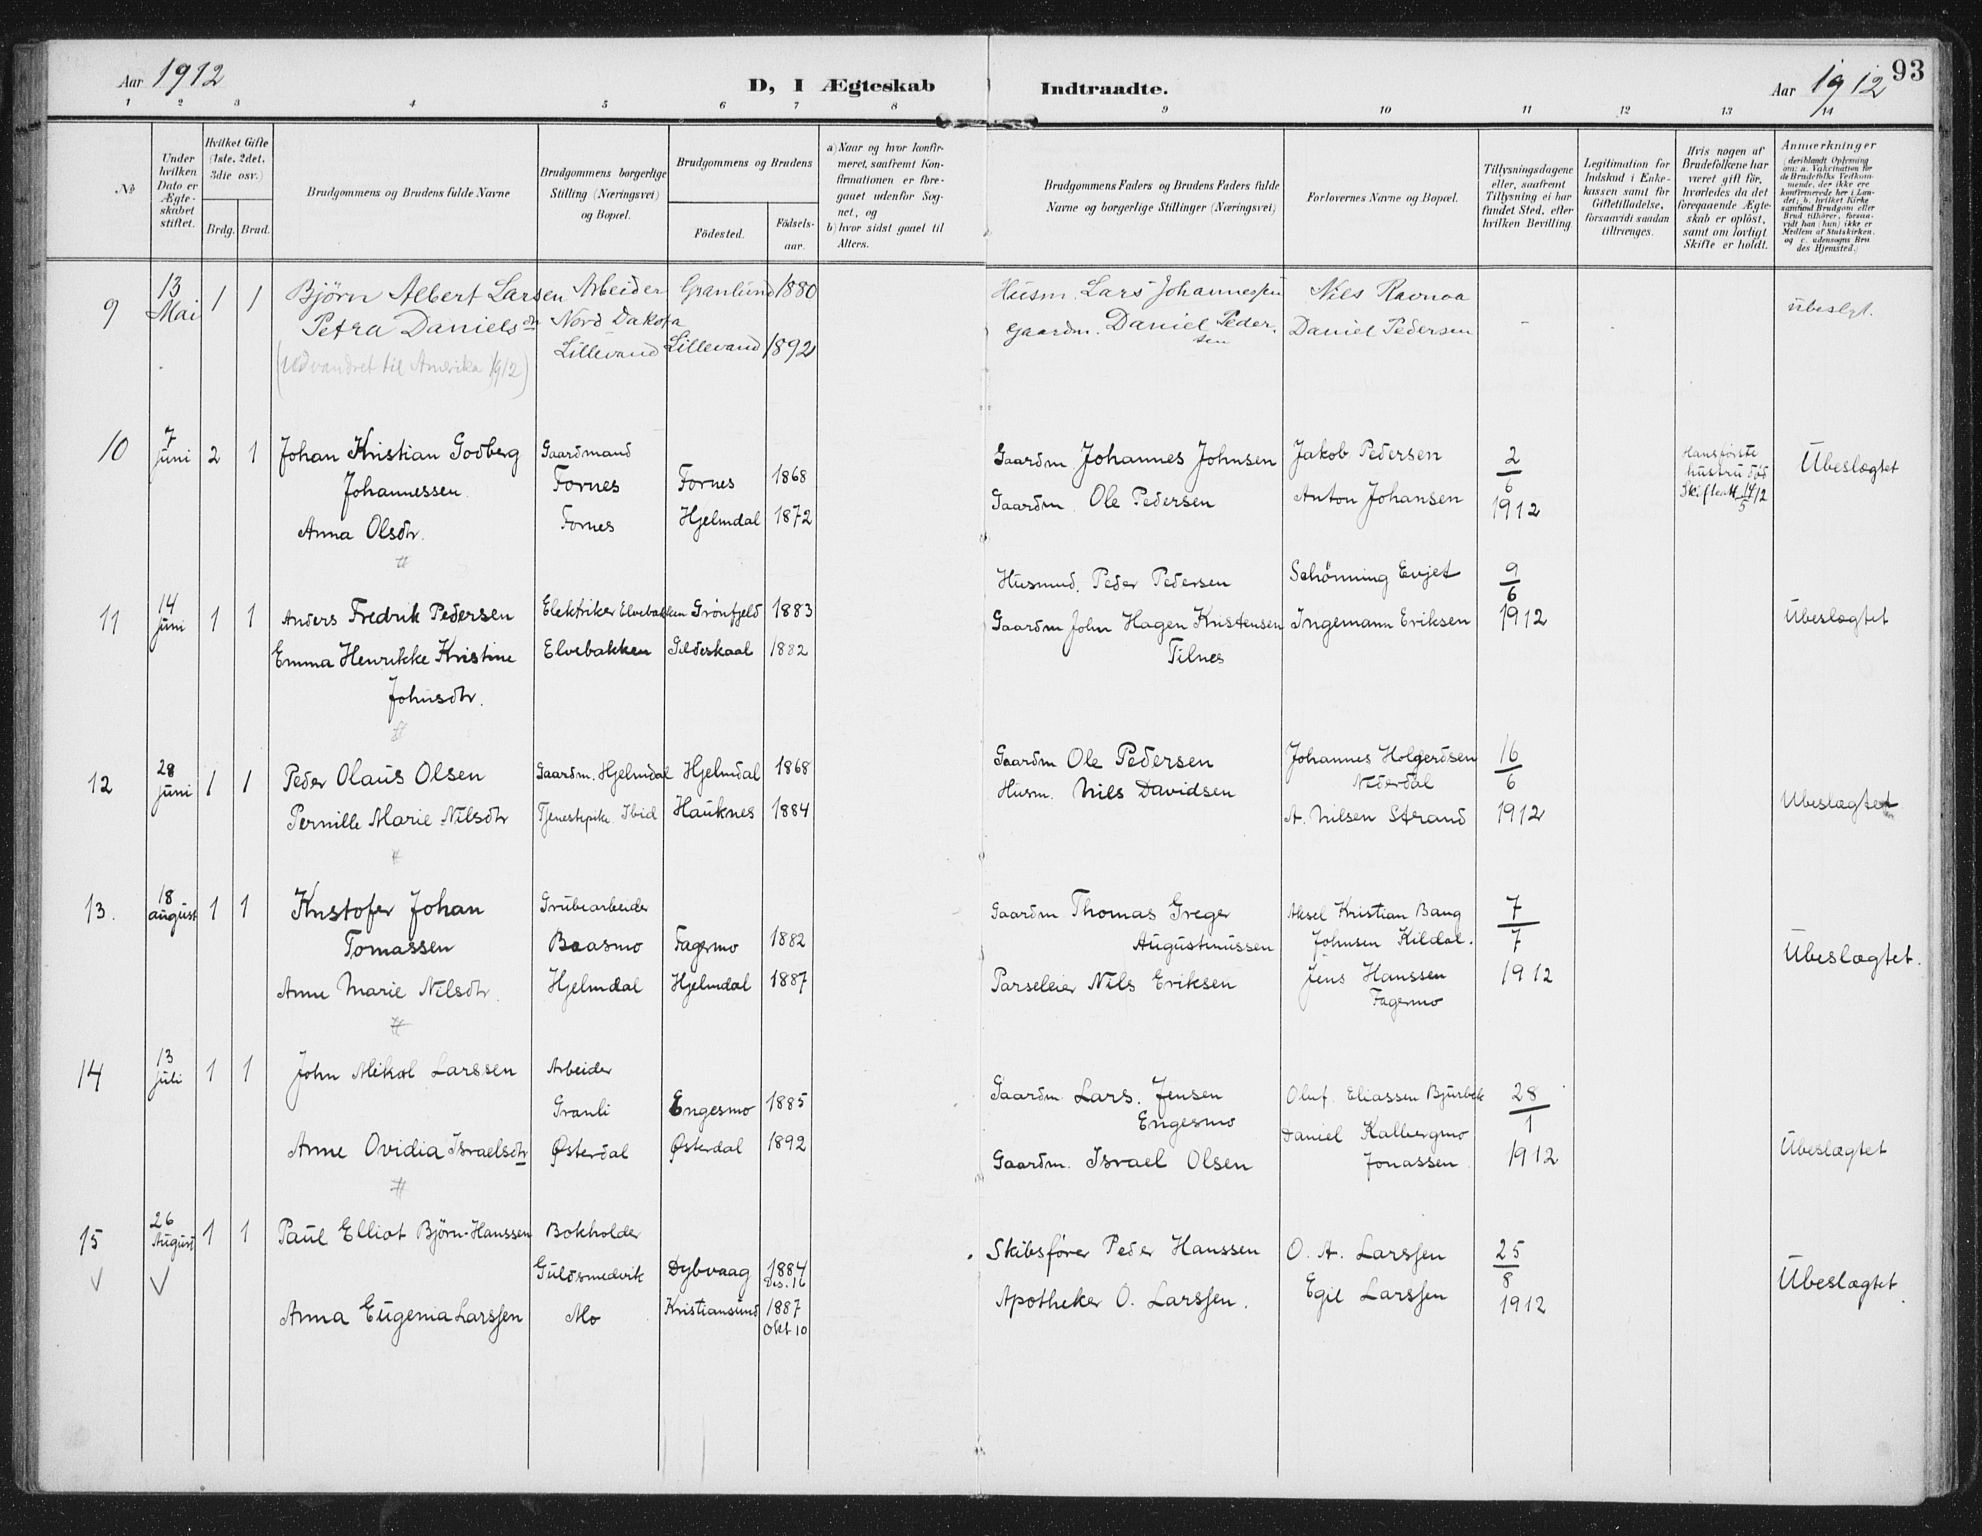 Aar 1912
D, I Ægteskab Indtraadte.
Aar 1912
93
1 2 3 4 5 6 7 8 9 10 11 12 13 14
No
Under hvilken Dato er Ægteskabet stiftet.
Hvilket Gifte (1ste, 2det, 3die osv.)
Brdg. Brud.
Brudgommens og Brudens fulde Navne
Brudgommens borgerlige Stilling (Næringsvei) og Bopæl.
Brudgommens og Brudens
Fødested. Fødselsaar.
a) Naar og hvor konfirmeret, saafremt Konfirmationen er foregaaet udenfor Sognet, og
b) hvor sidst gaaet til Alters.
Brudgommens Faders og Brudens Faders fulde Navne og borgerlige Stillinger (Næringsvei)
Forlovernes Navne og Bopæl.
Tillysningsdagene eller, saafremt Tillysning ei har fundet Sted, efter hvilken Bevilling.
Legitimation for Indskud i Enkekassen samt for Giftetilladelse, forsaavidt saadan tiltrænges.
Hvis nogen af Brudefolkene har været gift før, hvorledes da det foregaaende Ægteskab er opløst, samt om lovligt Skifte er holdt.
Anmerkninger
(deriblandt Oplysning om: a. Vakcination for de Brudefolks Vedkommende, der ikke ere konfirmerede her i Landet; b. hvilket Kirkesamfund Brudgom eller Brud tilhører, forsaavidt han (hun) ikke er Medlem af Statskirken, og c. udensogns Brudes Hjemsted.)
9 13 Mai 1 1 Björn Albert Larsen Arbeider Granlund 1880 Husm. Lars Johannessen Nils Ravnaa ubeslgt.
Petra Danielsdr Nord Dakota Gaardm. Daniel Pedersen Daniel Pedersen -
Lillevand Lillevand 1892
(Udvandret til Amerika 1912)
10 7 Juni 2 1 Johan Kristian Godberg Gaardmand Gaardm Johannes Johnsen Jakob Pedersen 2/6 Hans første hustru død Ubeslægtet
Johannessen Fornes Fornes 1868 Gaardm Ole Pedersen Anton Johansen 1912 Skifteatt 14/5 12
Anna Olsdtr. Fornes Hjelmdal 1872
Husmnd. Peder Pedersen Schönning Evjet 9/6
11 14 Juni 1 1 Anders Fredrik Pedersen Elektriker Elvebakken Grönfjeld 1883 Gaardm John Hagen Kristensen Ingemann Eriksen 1912 Ubeslægtet
Emma Henrikke Kristine Elvebakken Gildeskaal 1882 Tilnes
Johnsdtr.
12 28 Juni 1 1 Peder Olaus Olsen Gaardm. Hjelmdal Hjelmdal 1868 Gaardm Ole Pedersen Johannes Holgerdsen 16/6
Nederdal
Pernille Marie Nilsdtr Tjenestepike Ibid Hauknes 1884 Husm. Nils Davidsen A. Nilsen Strand 1912 Ubeslægtet
13. 18 august 1 1 Kristofer Johan Grubearbeider Gaardm Thomas Greger Aksel Kristian Bang 7/7
Tomassen Baasmo Fagermo 1882 Augustinussen Johnsen Kildal. Ubeslægtet.
Anne Marie Nilsdtr. Hjelmdal Hjelmdal 1887 Parseleier Nils Eriksen Jens Hanssen 1912
Fagermo
14 13 Juli 1 1 John Mikal Larssen Arbeider Gaardm. Lars. Jensen Oluf Eliassen Bjurbek 28/1
Granli Engesmo 1885 Engesmo Daniel Kalbergmo
Anne Ovidia Israelsdtr Østerdal Østerdal 1892 Gaardm. Israel Olsen Jonassen 1912 Ubeslægtet
15 26 August 1 1 Paul Elliot Björn-Hanssen Bokholder Skibsförer Peder Hanssen O. A. Larssen 25/8
Guldsmedvik Dybvaag 1884 Des. 16 Ubeslægtet
Anna Eugenia Larssen Mo Kristiansund 1887 Okt 10 Apotheker O. Larssen. Egil Larssen 1912